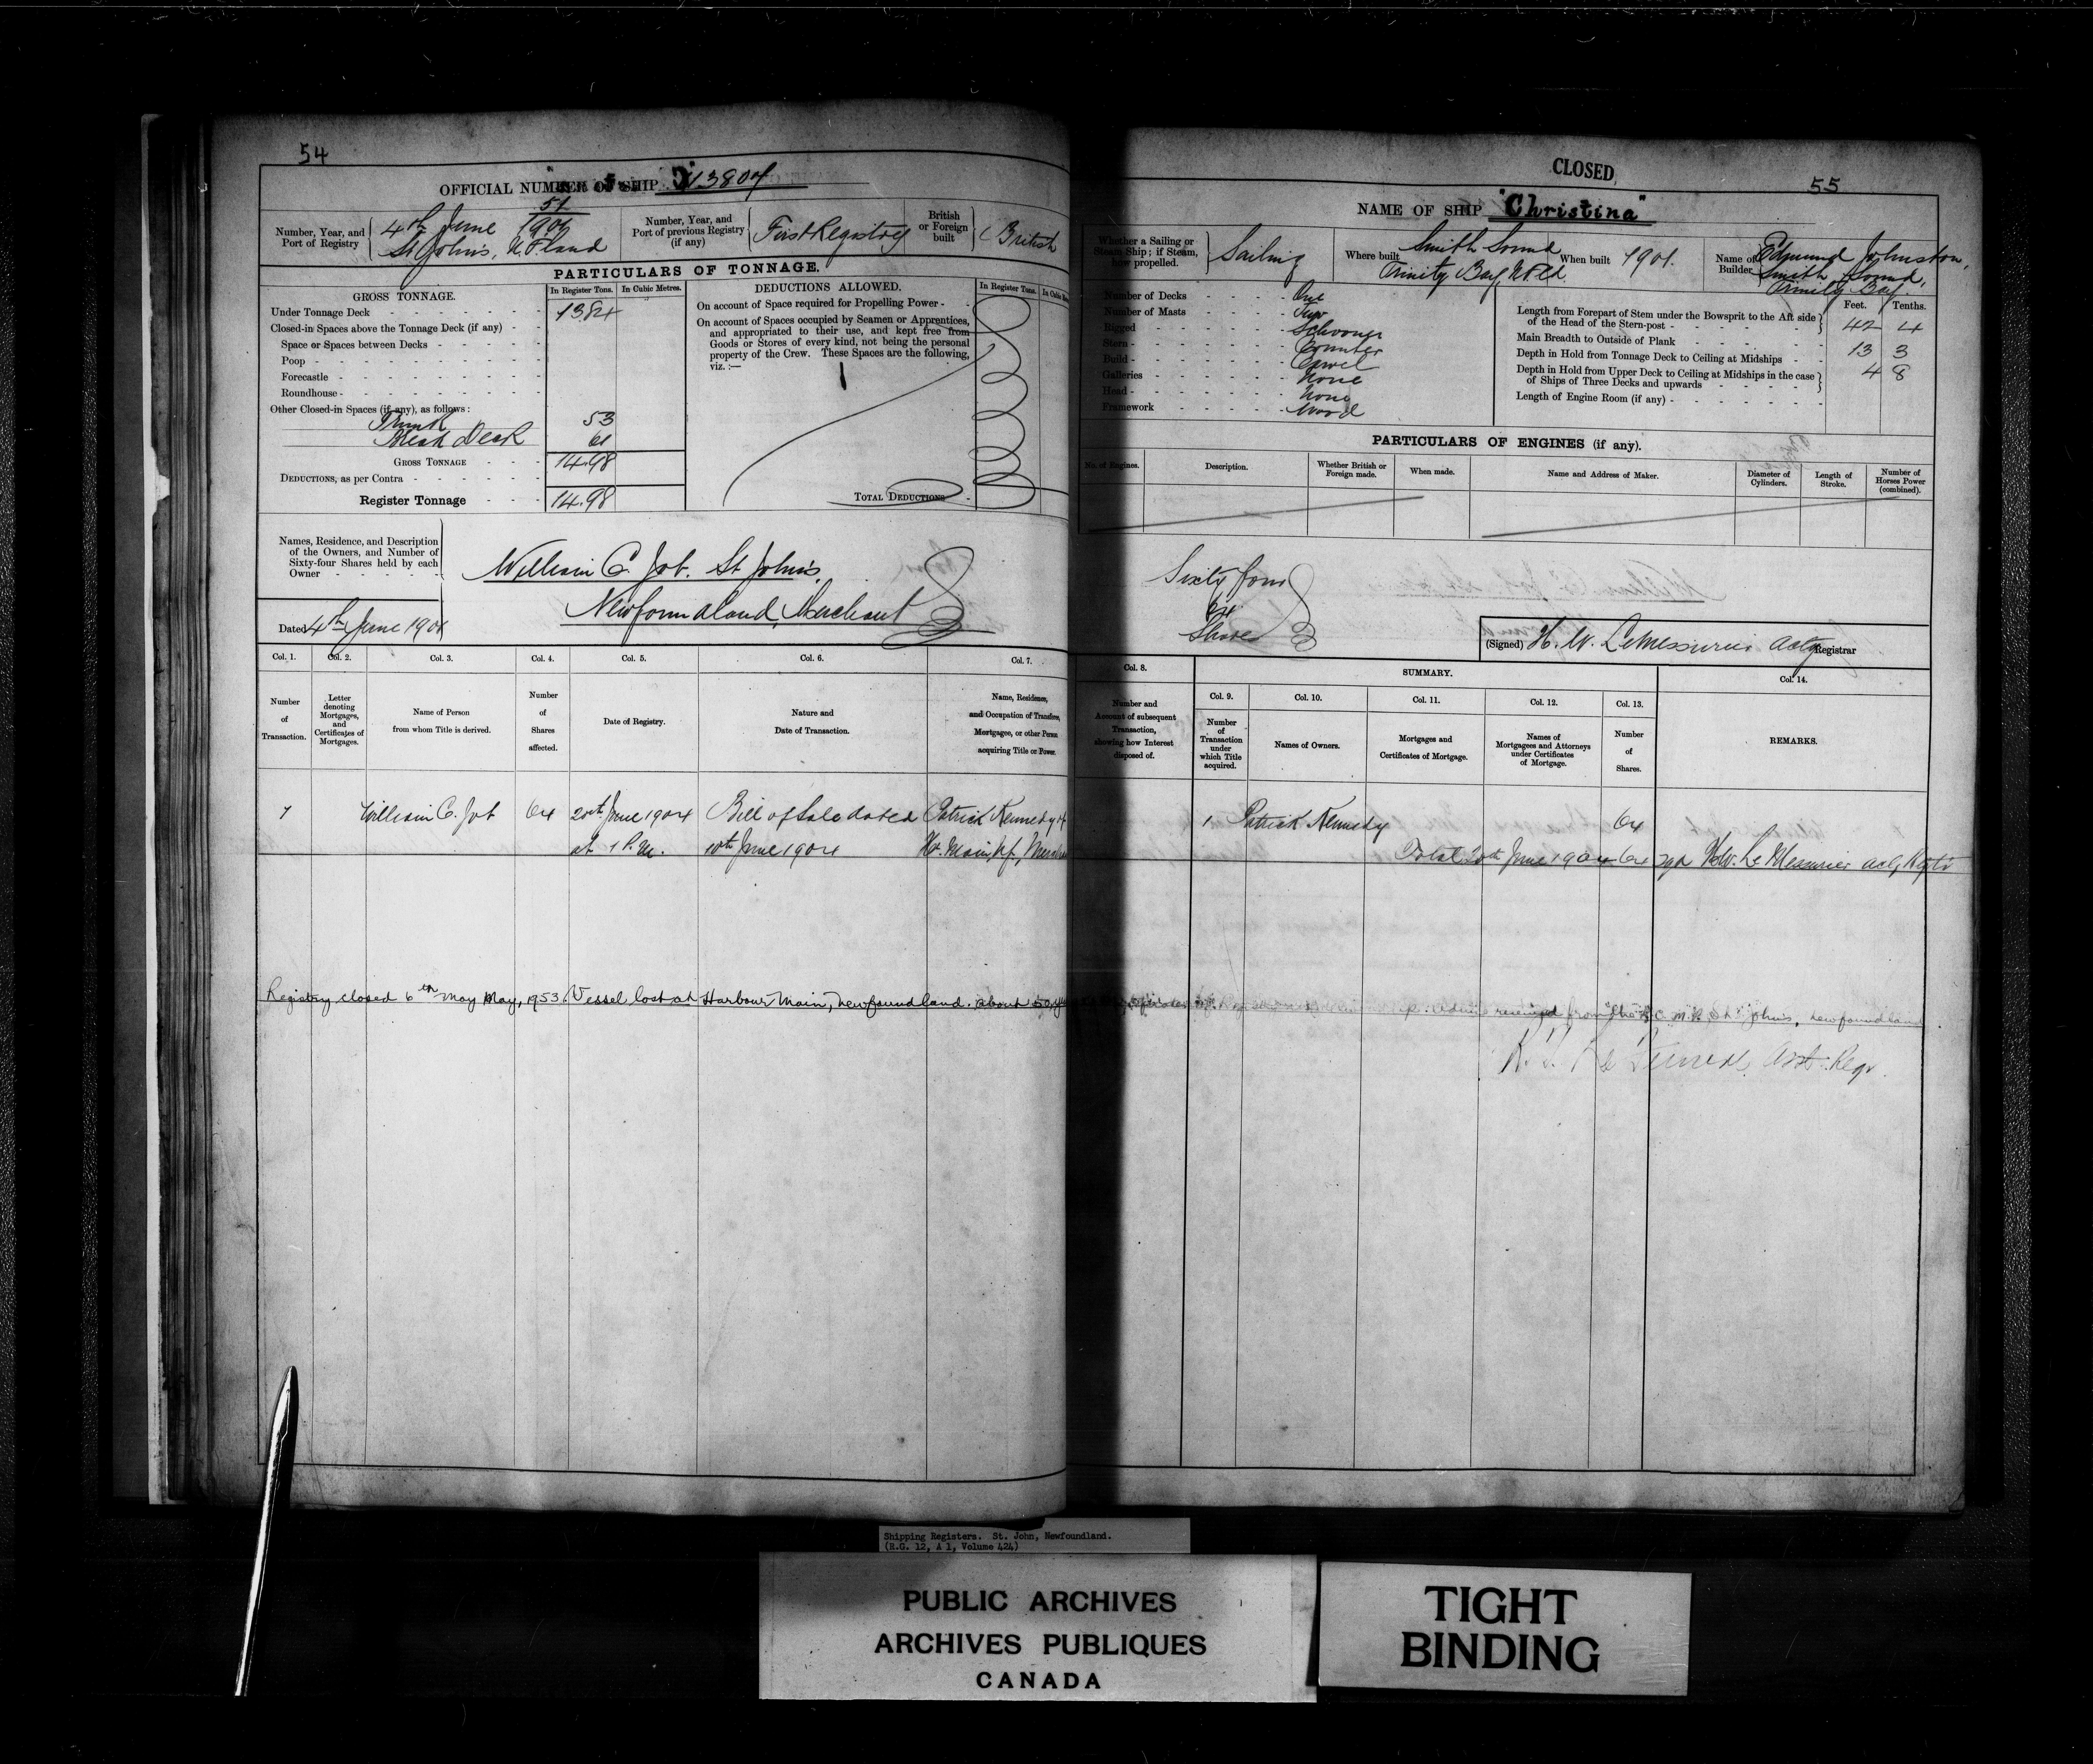 54
OFFICIAL NUMBER OF SHIP
51
4th June 1901
Number, Year, and Port of Registry
St John's, N.F.land
Number, Year, and Port of previous Registry (if any)
First Registry
British or Foreign built
British
PARTICULARS OF TONNAGE.
GROSS TONNAGE.
In Register Tons.
In Cubic Metres.
Under Tonnage Deck
13.84
Closed-in Spaces above the Tonnage Deck (if any)
Space or Spaces between Decks
Poop
Forecastle
Roundhouse
Other Closed-in Spaces (if any), as follows:
Trunk 53
Break Deck 61
GROSS TONNAGE 14.98
DEDUCTIONS, as per Contra
Register Tonnage 14.98
DEDUCTIONS ALLOWED.
In Register Tons.
On account of Space required for Propelling Power
On account of Spaces occupied by Seamen or Apprentices,
and appropriated to their use, and kept free from
Goods or Stores of every kind, not being the personal
property of the Crew. These Spaces are the following,
viz.:—
TOTAL DEDUCTIONS
Names, Residence, and Description
of the Owners, and Number of
Sixty-four Shares held by each
Owner
William C. Job. St John's,
Newfoundland, Merchant
Dated 4th June 1901
Col. 1. Col. 2. Col. 3. Col. 4. Col. 5. Col. 6. Col. 7.
Number of Transaction.
Letter denoting Mortgages, and Certificates of Mortgages.
Name of Person from whom Title is derived.
Number of Shares affected.
Date of Registry.
Nature and Date of Transaction.
Name, Residence, and Occupation of Transferee, Mortgagee, or other Person acquiring Title or Power.
1 William C. Job 64 20th June 1904 Bill of Sale dated Patrick Kennedy of
at 1 P.M. 10th June 1904 Hr. Main,
Registry closed 6th May May, 1953. Vessel lost at Harbour Main, Newfoundland. about 50
CLOSED
55
NAME OF SHIP "Christina"
Whether a Sailing or Steam Ship; if Steam, how propelled.
Sailing
Where built
Smith Sound
Trinity Bay, Nfld
When built 1901.
Name of Builder
Edmund Johnston,
Smith Sound,
Trinity Bay.
Number of Decks One
Number of Masts Two
Rigged Schooner
Stern Counter
Build Carvel
Galleries None
Head None
Framework Wood
Feet. Tenths.
Length from Forepart of Stem under the Bowsprit to the Aft side
of the Head of the Stern-post 42 4
Main Breadth to Outside of Plank 13 3
Depth in Hold from Tonnage Deck to Ceiling at Midships 4 8
Depth in Hold from Upper Deck to Ceiling at Midships in the case
of Ships of Three Decks and upwards
Length of Engine Room (if any)
PARTICULARS OF ENGINES (if any).
No. of Engines.
Description.
Whether British or Foreign made.
When made.
Name and Address of Maker.
Diameter of Cylinders.
Length of Stroke.
Number of Horses Power (combined).
Sixty four
64
Share
(Signed) H. W. LeMessurier Actg Registrar
Col. 8.
SUMMARY.
Col. 14.
Col. 9. Col. 10. Col. 11. Col. 12. Col. 13.
Number and Account of subsequent Transaction, showing how Interest disposed of.
Number of Transaction under which Title acquired.
Names of Owners.
Mortgages and Certificates of Mortgage.
Names of Mortgagees and Attorneys under Certificates of Mortgage.
Number of Shares.
REMARKS.
1 Patrick Kennedy 64
Total 20th June 1904 64 sgd H.W. Le Messurier actg Regtr
received from the R.C.M.P. St. John's, Newfoundland
Asst. Regr.
Shipping Registers. St. John, Newfoundland.
(R.G. 12, A 1, Volume 424)
PUBLIC ARCHIVES
ARCHIVES PUBLIQUES
CANADA
TIGHT
BINDING